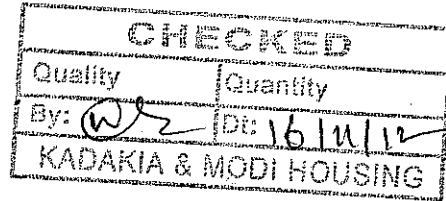 CHECKED
Quality Quantity
By: Dt: 16/11/12
KADAKIA & MODI HOUSING